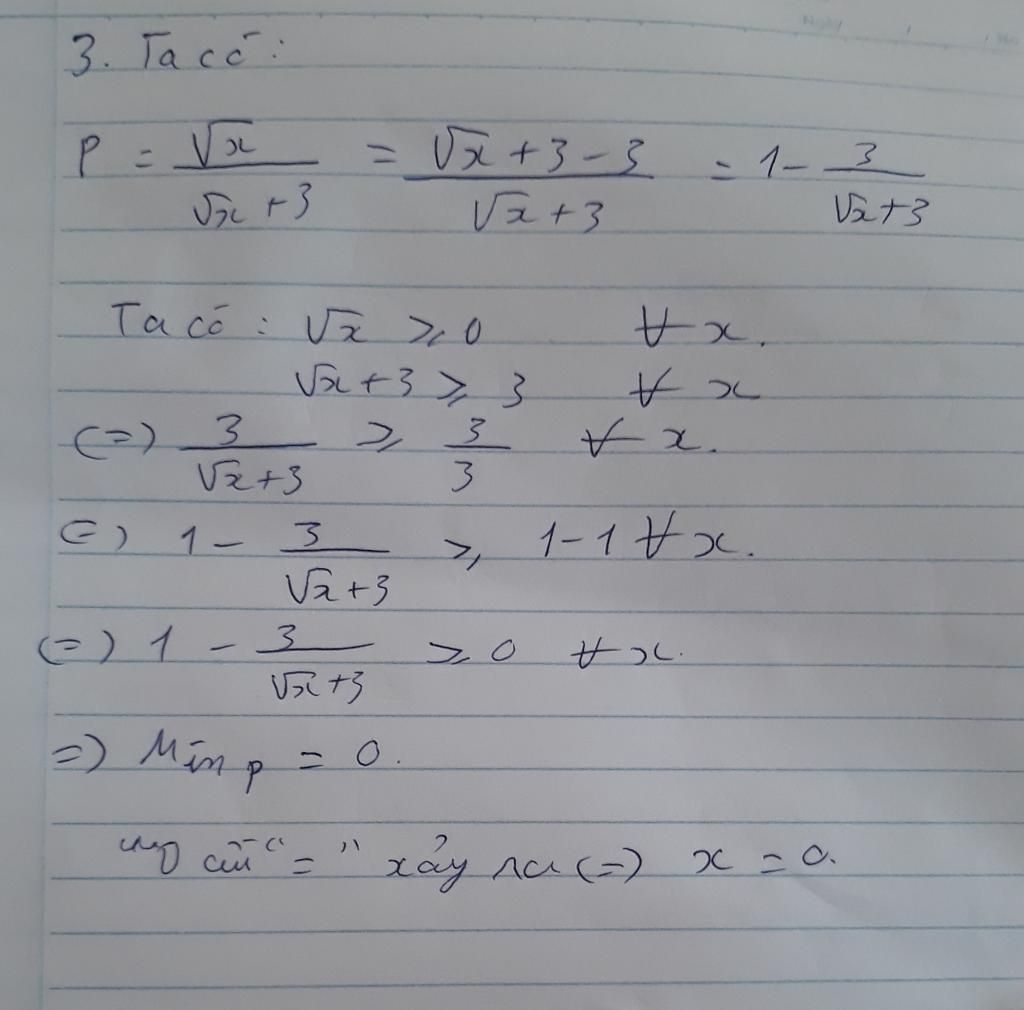 3. Ta có:
P = √x / (√x + 3) = (√x + 3 - 3) / (√x + 3) = 1 - 3 / (√x + 3)
Ta có: √x ⩾ 0 ∀ x.
√x + 3 ⩾ 3 ∀ x
(=) 3 / (√x + 3) ⩾ 3 / 3 ∀ x.
(=) 1 - 3 / (√x + 3) ⩾ 1 - 1 ∀ x.
(=) 1 - 3 / (√x + 3) ⩾ 0 ∀ x.
=) Min p = 0.
"=" xảy ra (=) x = 0.